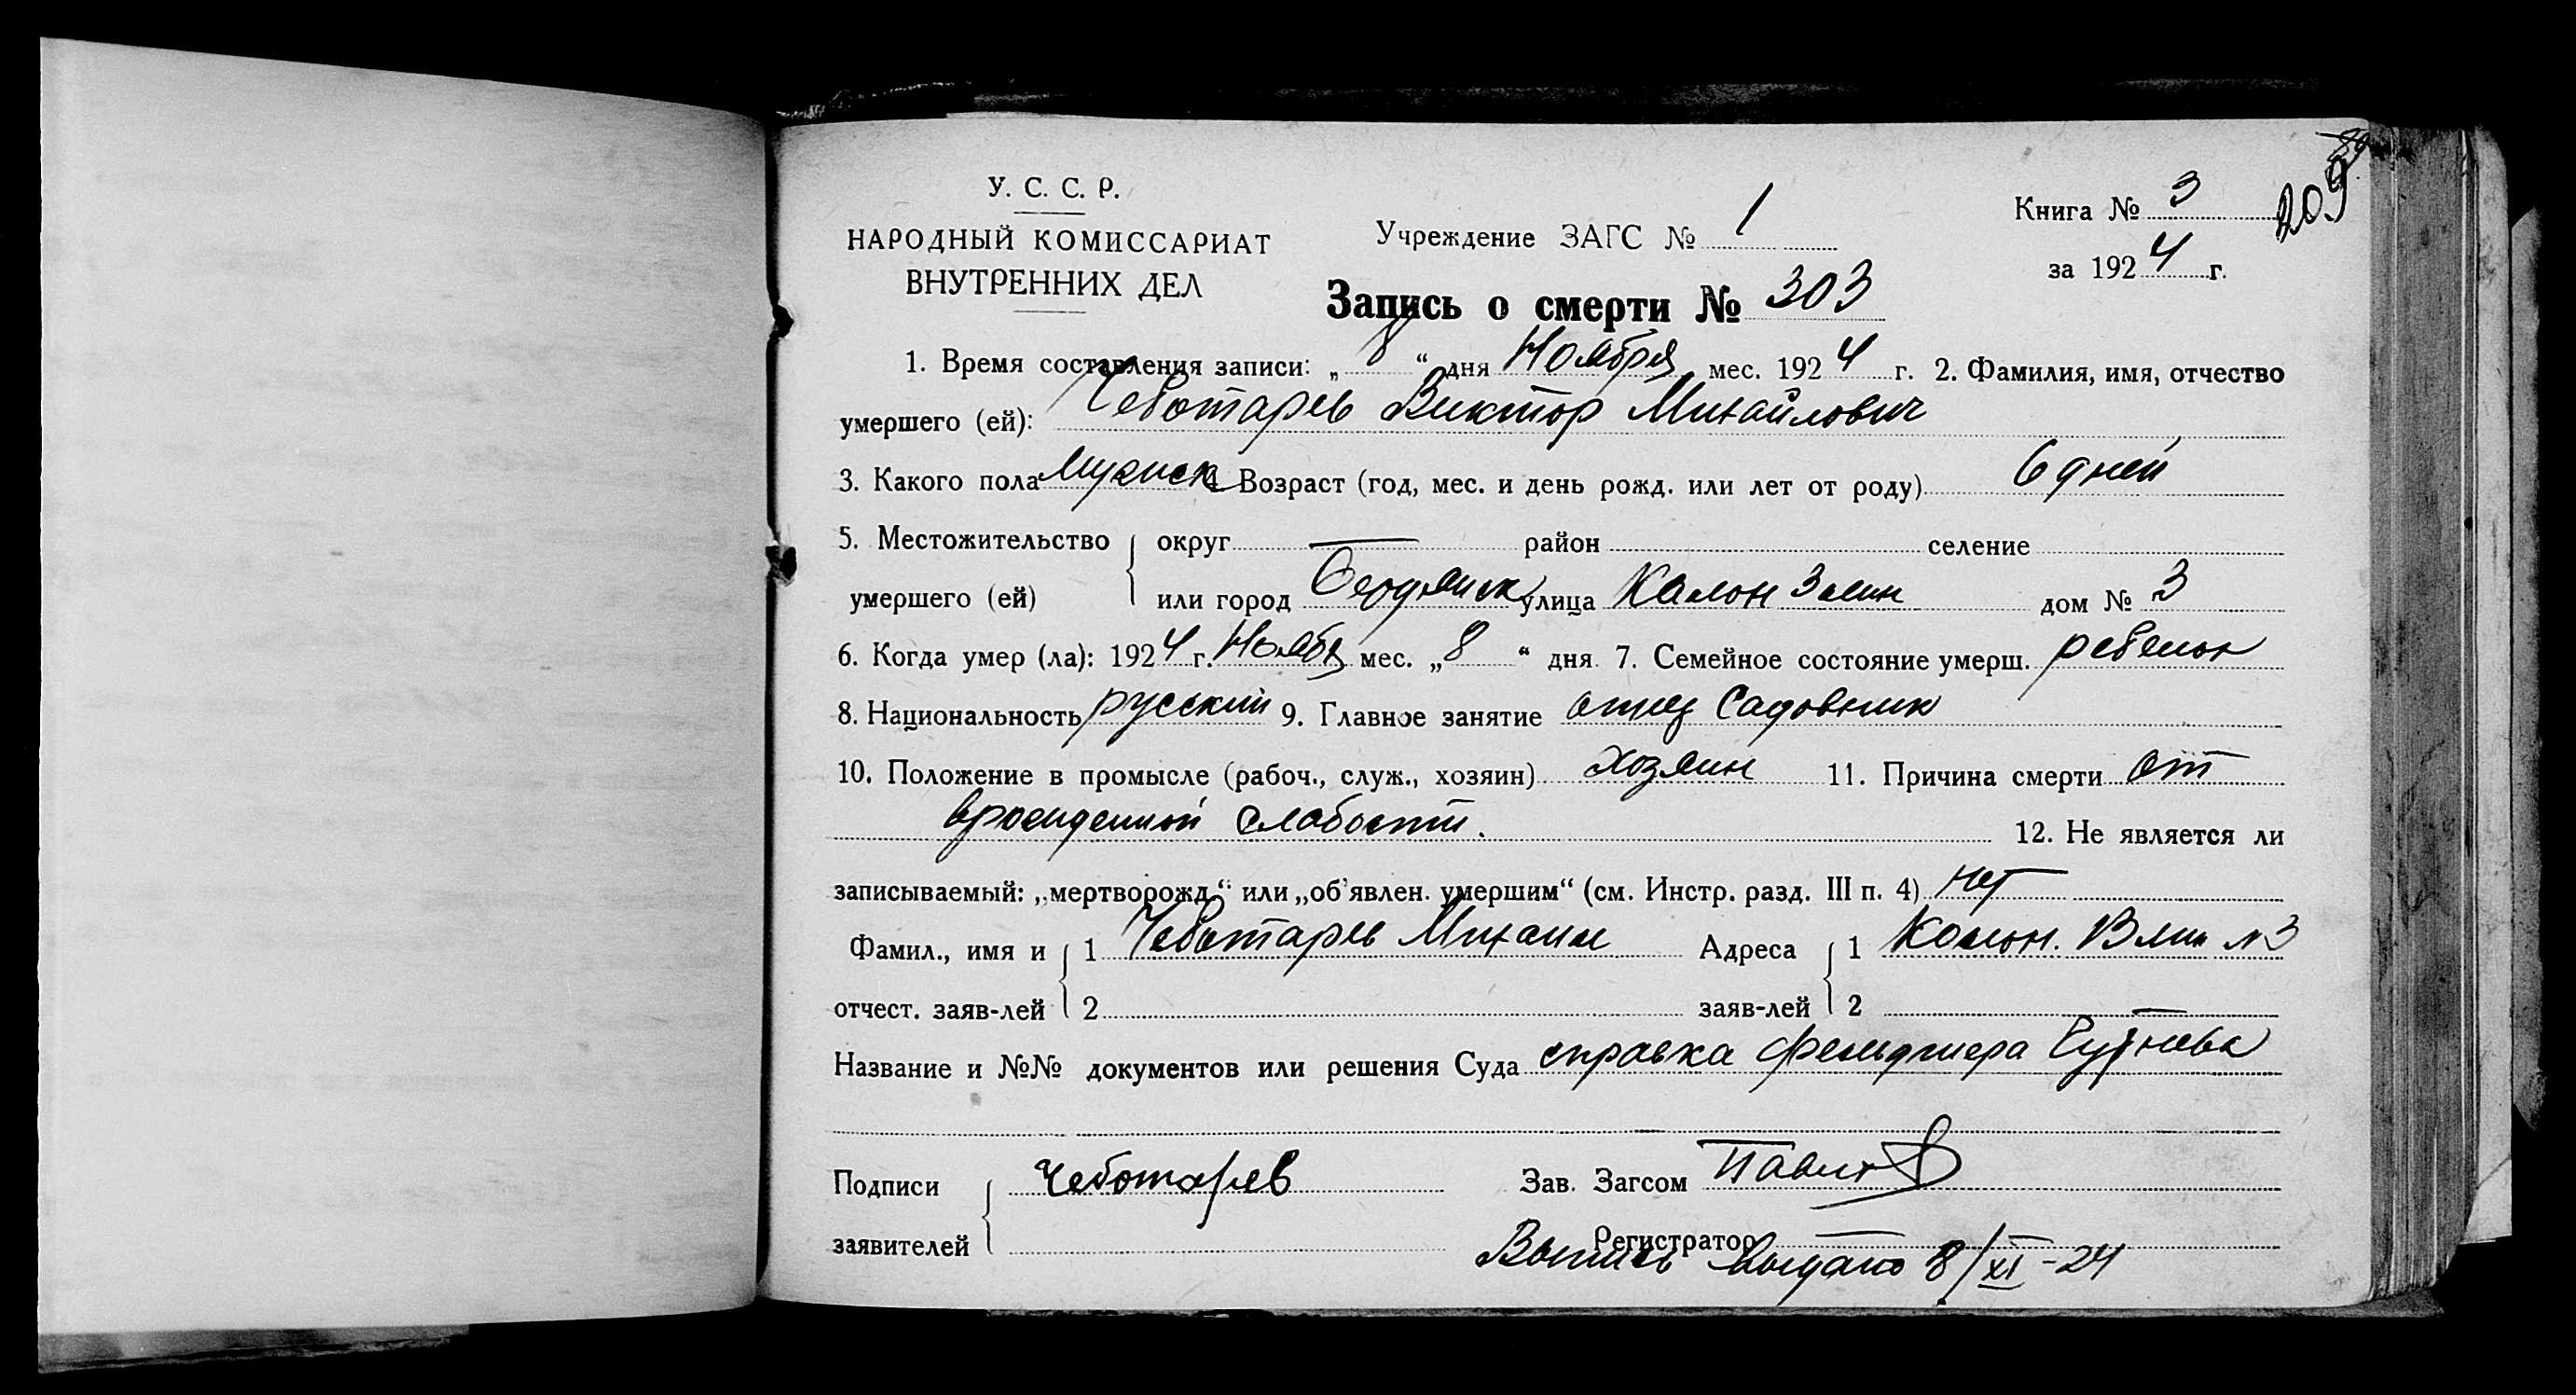 209
У. С. С. Р.
НАРОДНЫЙ КОМИССАРИАТ
ВНУТРЕННИХ ДЕЛ
Учреждение ЗАГС № 1
Книга № 3
за 1924 г.
Запись о смерти № 303
1. Время составления записи: „ 8 “ дня Ноября мес. 1924 г. 2. Фамилия, имя, отчество
умершего (ей): Чеботарев Виктор Михайлович
3. Какого пола Мужск 4. Возраст (год, мес. и день рожд. или лет от роду) 6 дней
5. Местожительство округ — район селение
умершего (ей) или город Бердянск улица Колон 3 лин дом № 3
6. Когда умер (ла): 1924 г. Ноябр мес. „ 8 “ дня 7. Семейное состояние умерш. ребенок
8. Национальность русский 9. Главное занятие отец Садовник
10. Положение в промысле (рабоч., служ., хозяин) хозяин 11. Причина смерти от
врожденной слабости. 12. Не является ли
записываемый: „мертворожд.“ или „об'явлен. умершим“ (см. Инстр. разд. III п. 4) нет
Фамил., имя и 1 Чеботарев Михаил Адреса 1 Колон. лин № 3
отчест. заяв-лей 2 заяв-лей 2 —
Название и №№ документов или решения Суда справка фельдшера
Подписи Чеботарев Зав. Загсом
заявителей Регистратор —
Выпись выдана 8/XI-24